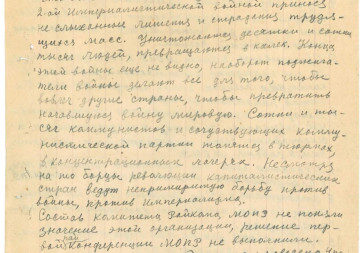 2-ой Империалистической войной принося
не слыханные лишения и страдания трудя-
щихся масс. Уничтожаются десятки и сотни
тысяч людей, превращаются в калек. Конца
этой войны еще не видно, наоборот поджига-
тели войны делают все для того, чтобы
вовлечь другие страны, чтобы превратить
начавшуюся войну мировую. Сотни и ты-
сяч коммунистов и сочувствующих комму-
нистической партии томятся в тюрьмах,
в концентрационных лагерях. Несмотря
на то борцы революции капиталистических
стран ведут непримиримую борьбу против
войны, против Империализма.
Состав комитета Райкома МОПР не поняли
значение этой организации, решение пер-
вой рай конференции МОПР не выполнили.